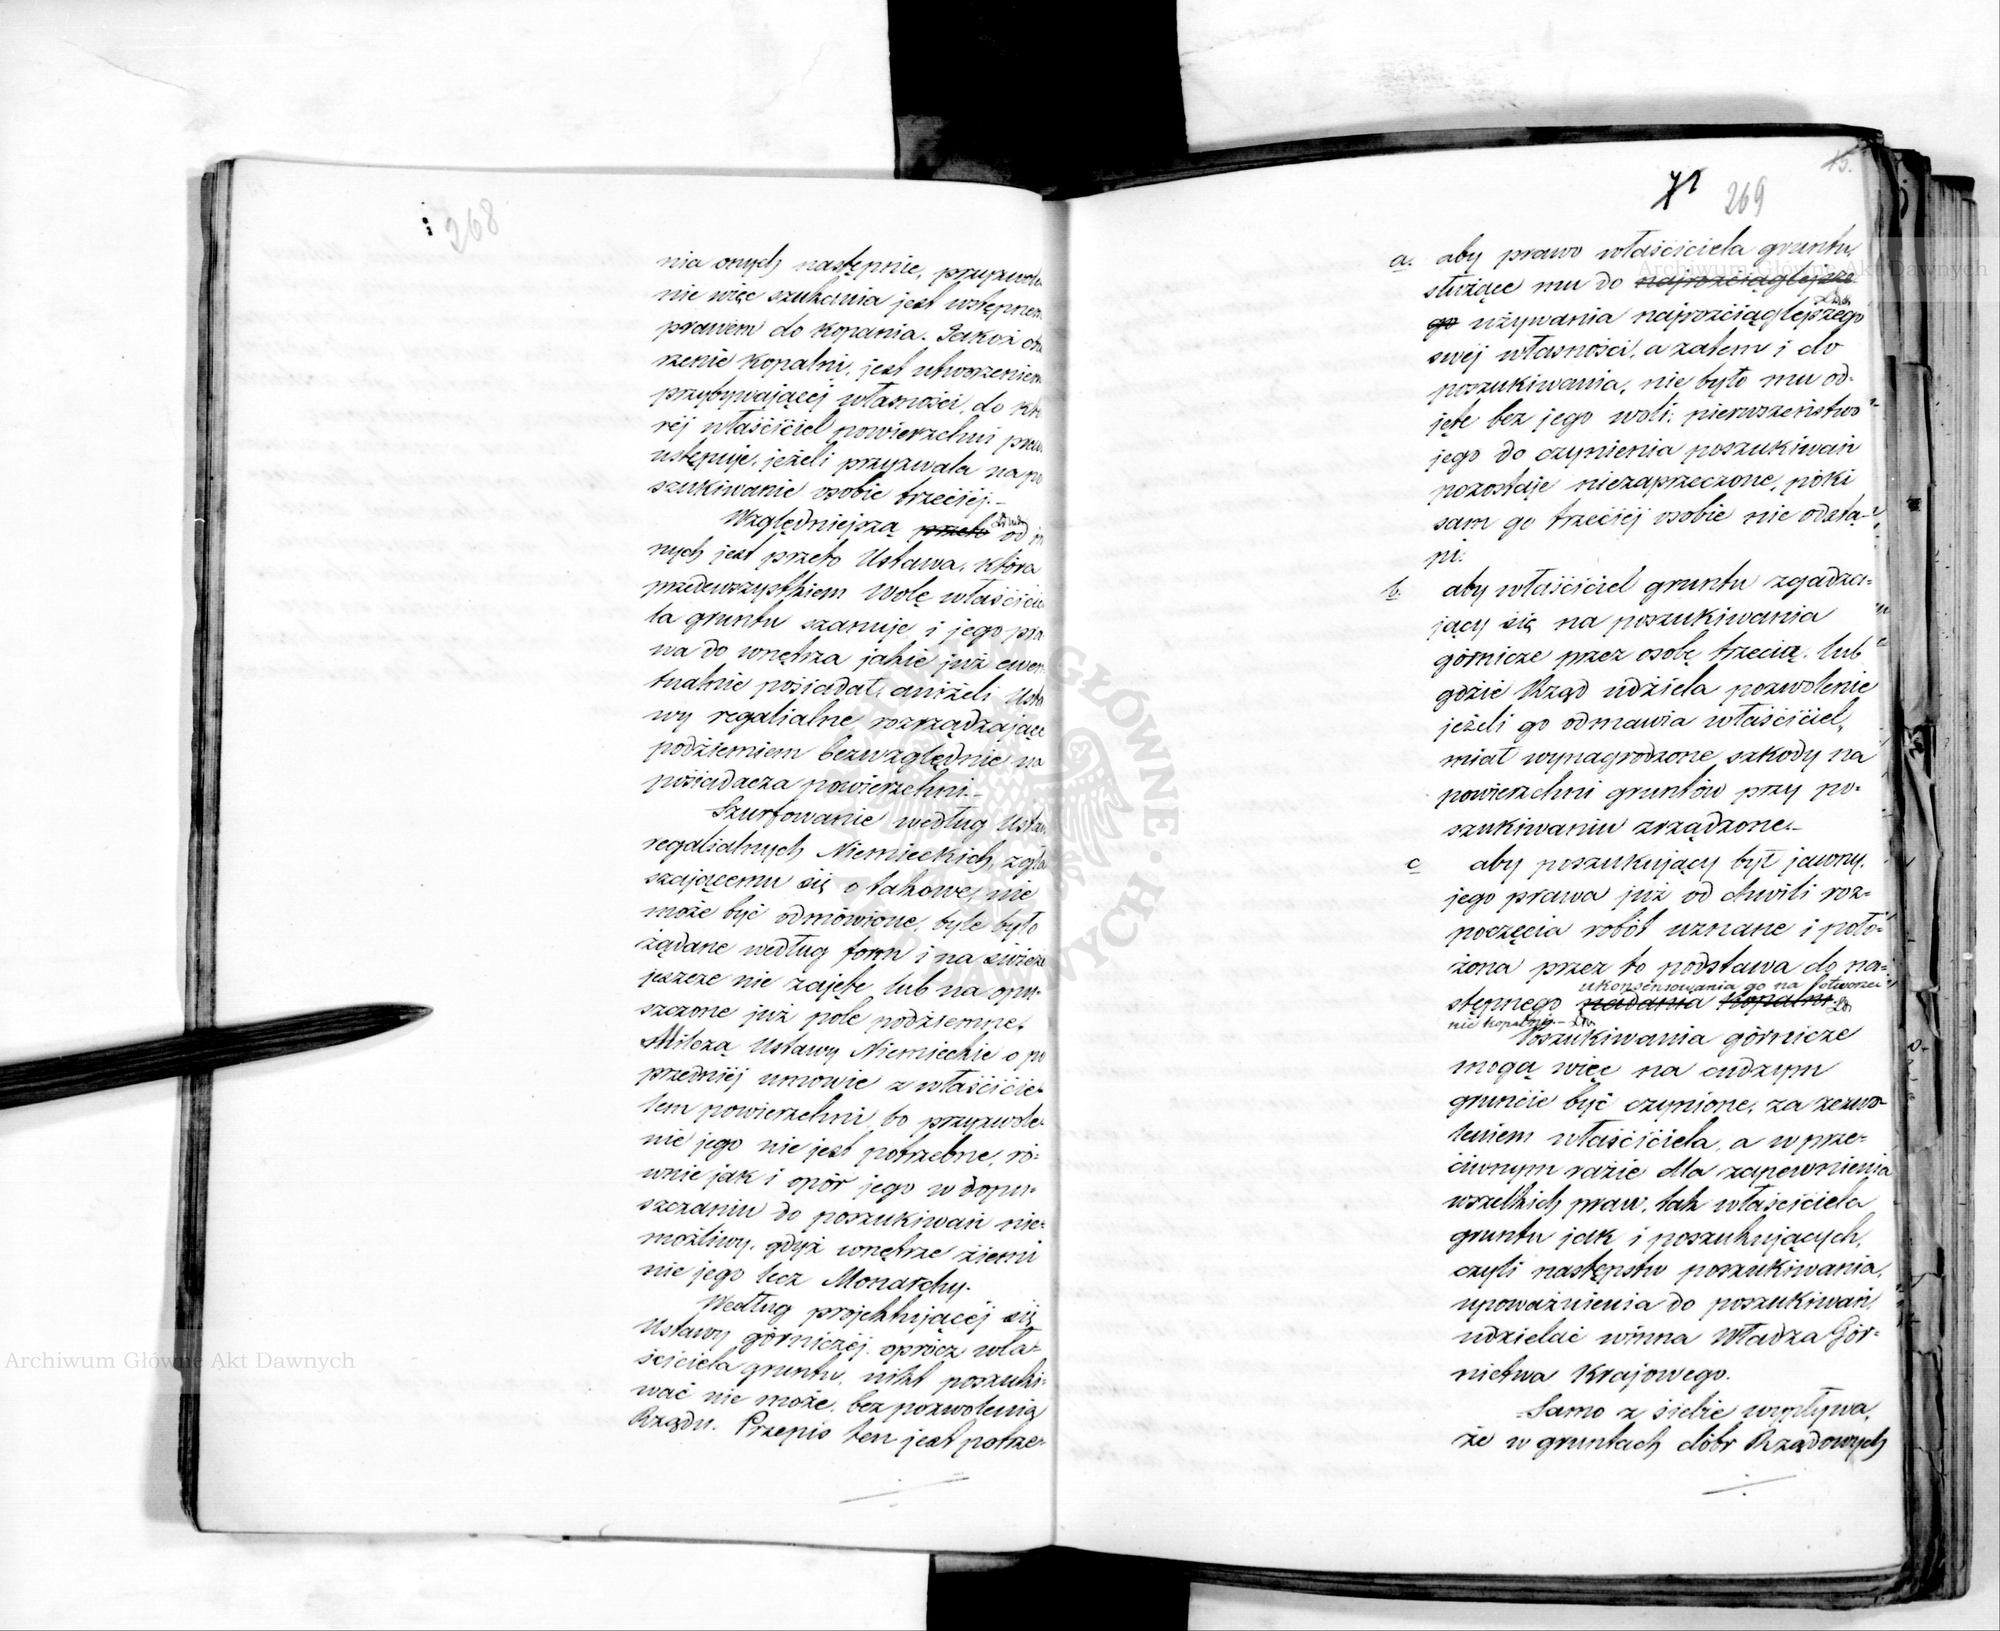 268
nia onych następnie, przyzwole
nie więc szukania jest wstępnem
prawem do kopania. Jakoż otw
rzenie kopalni, jest utworzeniem
przybywającéj własności, do któ
réj właściciel powierzchni praw
ustępuje, jeżeli przyzwala na po
szukiwanie osobie trzeciéj.—
Względniejszą przeto od in
nych jest przeto Ustawa, która
przedewszystkiem wolę właścicie
la gruntu szanuje i jego pra
wa do wnętrza jakie już ewen
tualnie posiadał, aniżeli Usta
wy regalialne rozrządzające
podziemiem bezwzględnie na
posiadacza powierzchni.—
Szurfowanie według Ustaw
regalialnych Niemieckich, zgła
szającemu się o takowe, nie
może być odmówione, byle było
żądane według form i na świeże
jeszcze nie zajęte lub na opu-
szczone już pole podziemne.
Milczą Ustawy Niemieckie o po
przedniéj umowie z właścicie-
lem powierzchni, bo przyzwole-
nie jego nie jest potrzebne, ró-
wnie jak i opór jego w dopu-
szczaniu do poszukiwań nie-
możliwy, gdyż wnętrze ziemi
nie jego lecz Monarchy.
Według projektującéj się
Ustawy górniczéj, oprócz wła-
ściciela gruntu, nikt poszuki-
wać nie może, bez pozwolenia
Rządu. Przepis ten jest potrze-
15.
269
a. aby prawo właściciela gruntu,
służące mu do najrozciąglejsze
go używania najrozciąglejszego
swéj własności, a zatem i do
poszukiwania, nie było mu od-
jęte bez jego woli; pierwszeństwo
jego do czynienia poszukiwań
pozostaje niezaprzeczone, póki
sam go trzeciéj osobie nie odstą-
pi.
b. aby właściciel gruntu zgadza-
jący się na poszukiwania
górnicze przez osobę trzecią, lub
gdzie Rząd udziela pozwolenie
jeżeli go odmawia właściciel,
miał wynagrodzone szkody na
powierzchni gruntów przy po-
szukiwaniu zrządzone.—
c aby poszukujący był jawny,
jego prawa już od chwili roz-
poczęcia robót uznane i poło-
żona przez to podstawa do na-
ukonsensowania go na otworze
stępnego nadania kopalni
nie kopalni.—
Poszukiwania górnicze
mogą więc na cudzym
gruncie być czynione, za zezwo-
leniem właściciela, a w prze-
ciwnym razie dla zapewnienia
wszelkich praw, tak właściciela
gruntu jak i poszukujących,
czyli następstw poszukiwania,
upoważnienia do poszukiwań,
udzielać winna Władza Gór-
nictwa Krajowego.
Samo z siebie wypływa,
że w gruntach dóbr Rządowych
Archiwum Główne Akt Dawnych
Archiwum Główne Akt Dawnych
ARCHIWUM GŁÓWNE AKT DAWNYCH